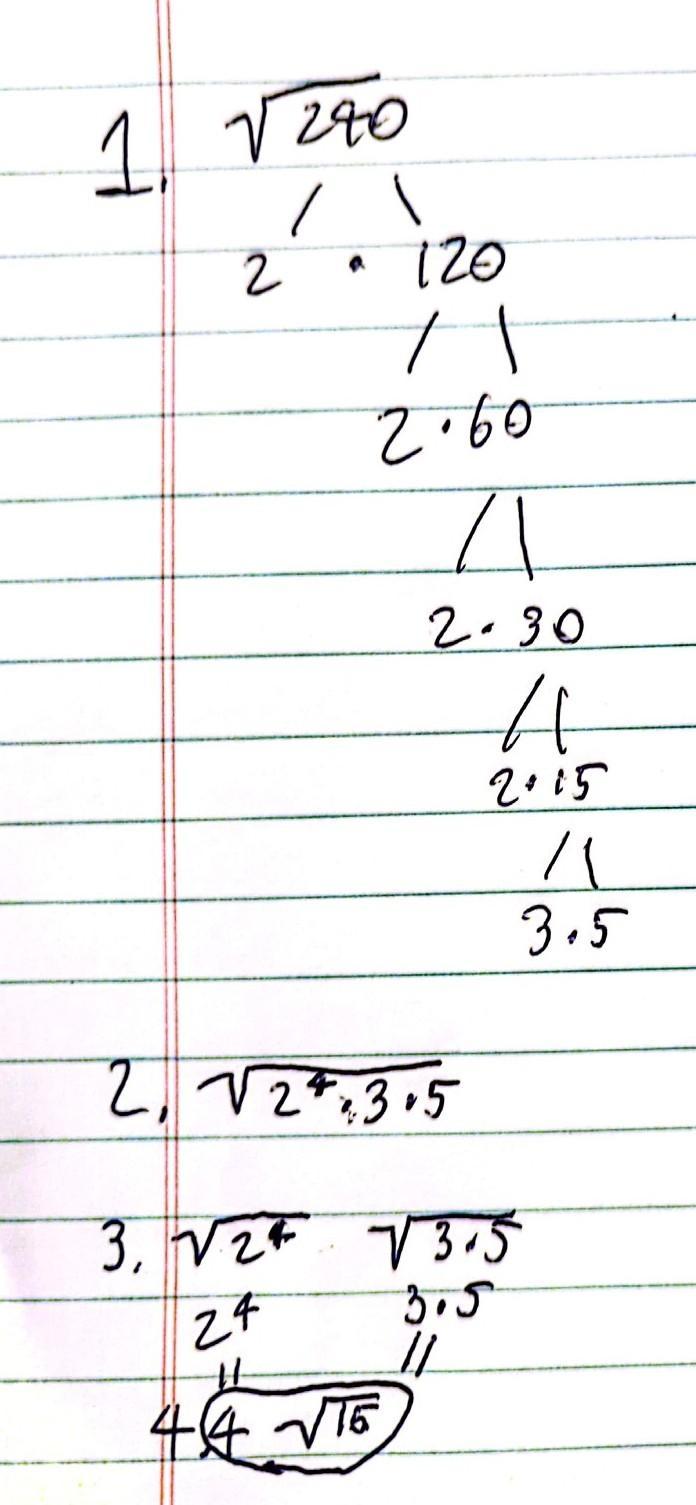 1. √240
/ \
2 · 120
/ \
2 · 60
/ \
2 · 30
/ \
2 · 15
/ \
3 · 5
2. √2⁴ · 3 · 5
3. √2⁴ √3 · 5
2⁴ 3 · 5
|| ||
4. 4 √15